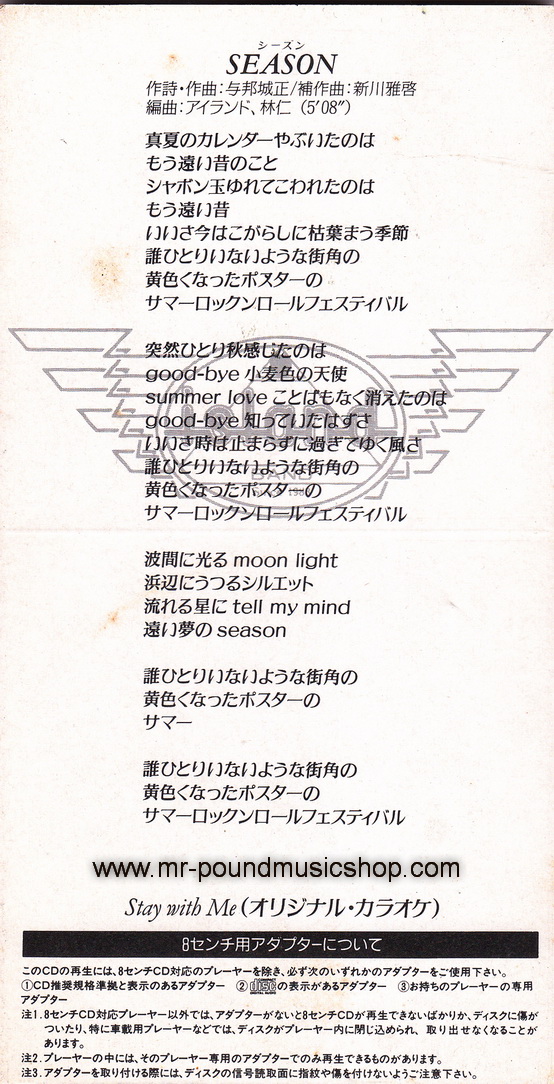 シーズン
SEASON
作詩・作曲:与邦城正/補作曲:新川雅啓
編曲:アイランド、林仁 (5'08")
真夏のカレンダーやぶいたのは
もう遠い昔のこと
シャボン玉ゆれてこわれたのは
もう遠い昔
いいさ今はこがらしに枯葉まう季節
誰ひとりいないような街角の
黄色くなったポスターの
サマーロックンロールフェスティバル
突然ひとり秋感じたのは
good-bye 小麦色の天使
summer love ことばもなく消えたのは
good-bye 知っていたはずさ
いいさ時は止まらずに過ぎてゆく風さ
誰ひとりいないような街角の
黄色くなったポスターの
サマーロックンロールフェスティバル
island
BAND
波間に光る moon light
浜辺にうつるシルエット
流れる星に tell my mind
遠い夢の season
誰ひとりいないような街角の
黄色くなったポスターの
サマー
誰ひとりいないような街角の
黄色くなったポスターの
サマーロックンロールフェスティバル
www.mr-poundmusicshop.com
Stay with Me(オリジナル・カラオケ)
8センチ用アダプターについて
このCDの再生には、8センチCD対応のプレーヤーを除き、必ず次のいずれかのアダプターをご使用下さい。
①CD推奨規格準拠と表示のあるアダプター ②disc DIGITAL AUDIOの表示があるアダプター ③お持ちのプレーヤーの専用
アダプター
注1. 8センチCD対応プレーヤー以外では、アダプターがないと8センチCDが再生できないばかりか、ディスクに傷が
ついたり、特に車載用プレーヤーなどでは、ディスクがプレーヤー内に閉じ込められ、取り出せなくなることが
あります。
注2. プレーヤーの中には、そのプレーヤー専用のアダプターでのみ再生できるものがあります。
注3. アダプターを取り付ける際には、ディスクの信号読取面に指紋や傷を付けないようご注意下さい。